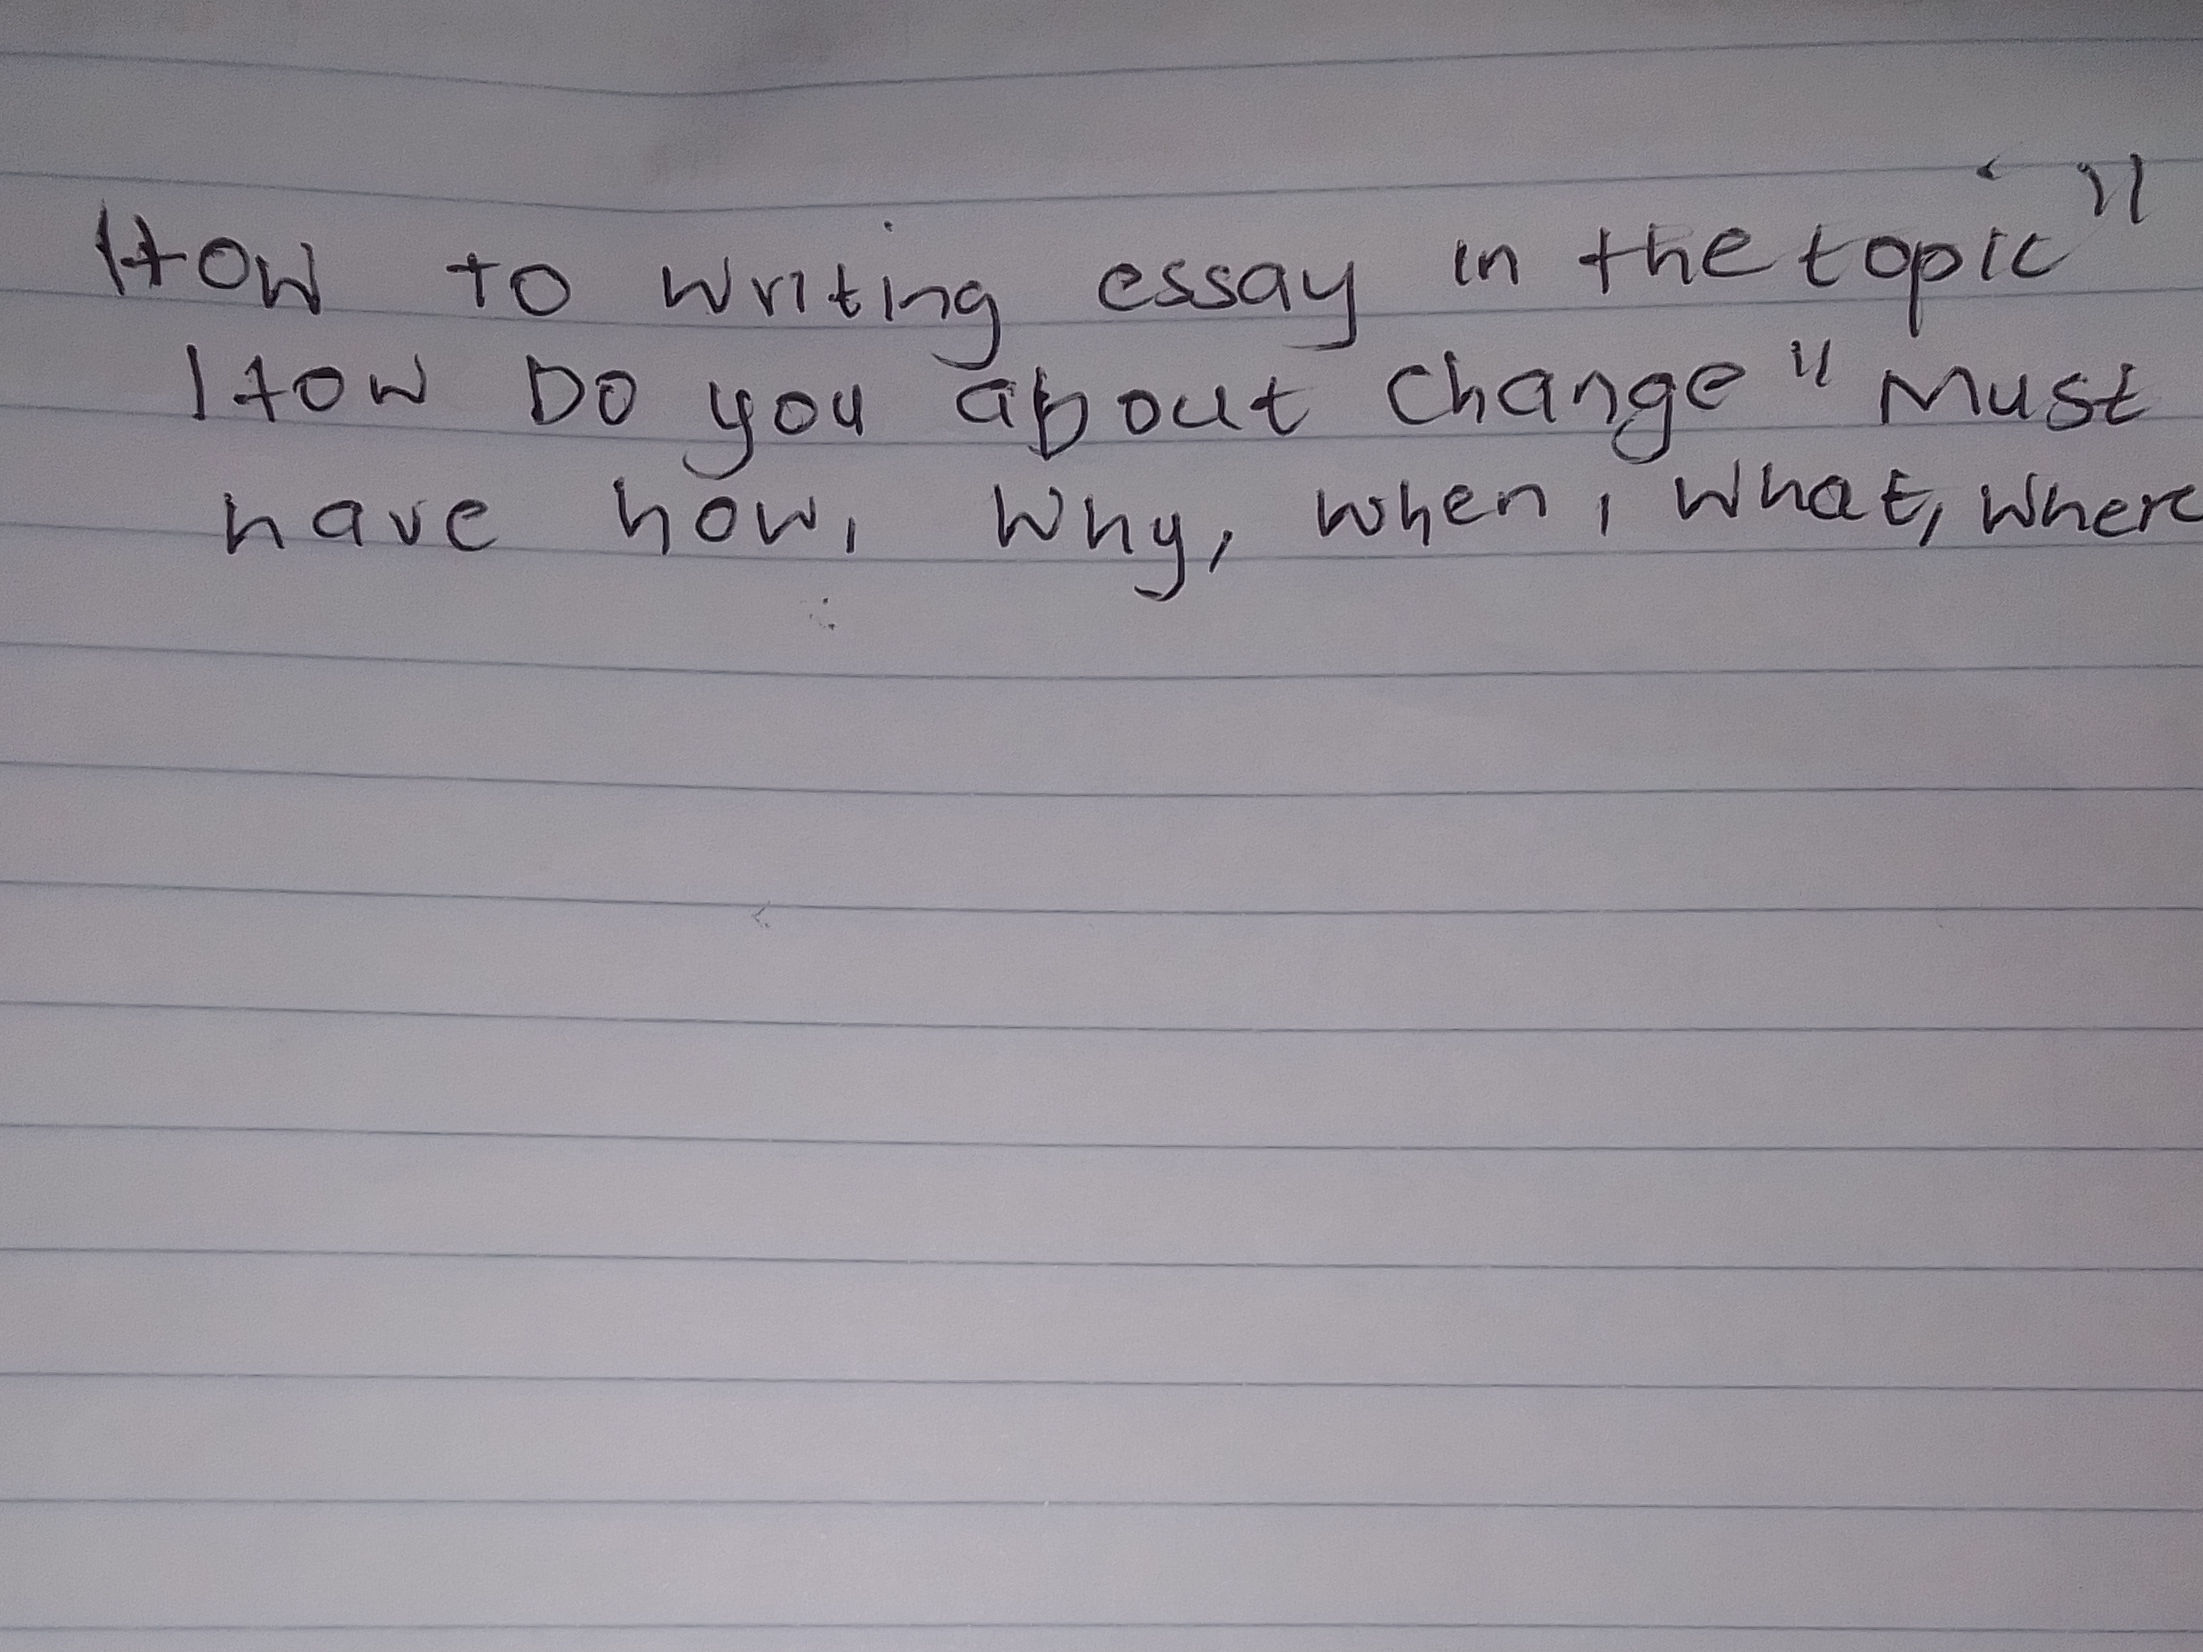 How to writing essay in the topic"
How Do you about change" Must
have how, Why, when, what, where